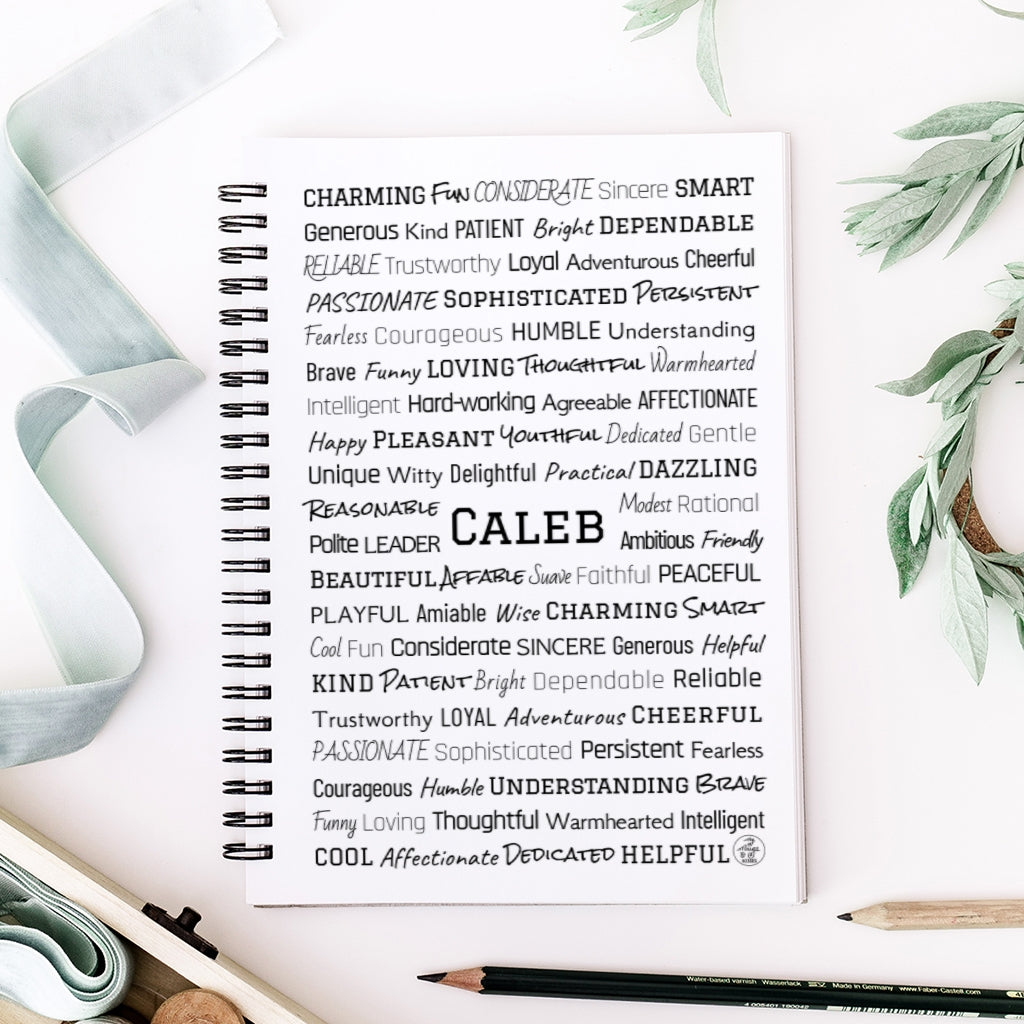 CHARMING Fun CONSIDERATE Sincere SMART
Generous Kind PATIENT Bright DEPENDABLE
RELIABLE Trustworthy Loyal Adventurous Cheerful
PASSIONATE SOPHISTICATED PERSISTENT
Fearless Courageous HUMBLE Understanding
Brave Funny LOVING THOUGHTFUL Warmhearted
Intelligent Hard-working Agreeable AFFECTIONATE
Happy PLEASANT YOUTHFUL Dedicated Gentle
Unique Witty Delightful Practical DAZZLING
REASONABLE Modest Rational
CALEB
Polite LEADER Ambitious Friendly
BEAUTIFUL AFFABLE Suave Faithful PEACEFUL
PLAYFUL Amiable Wise CHARMING SMART
Cool Fun Considerate SINCERE Generous Helpful
KIND PATIENT Bright Dependable Reliable
Trustworthy LOYAL Adventurous CHEERFUL
PASSIONATE Sophisticated Persistent Fearless
Courageous Humble UNDERSTANDING BRAVE
Funny Loving Thoughtful Warmhearted Intelligent
COOL Affectionate DEDICATED HELPFUL
Water-based varnish Wasserlack SV Made in Germany www.Faber-Castell.com
4 005401 190042